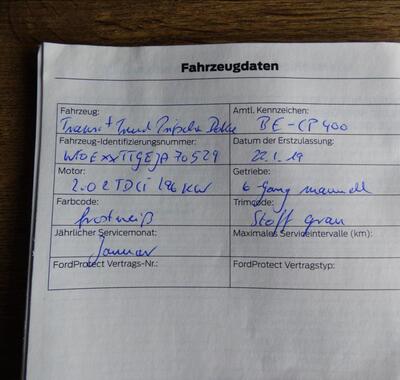 Fahrzeugdaten
Fahrzeug: Amtl. Kennzeichen:
Transit Trend Pritsche BE-CP 400
Fahrzeug-Identifizierungsnummer: Datum der Erstzulassung:
22.1.19
Motor: Getriebe:
2.0 TDCi KW 6 gang manuell
Farbcode: Trimcode:
frostweiß Stoff grau
Jährlicher Servicemonat: Maximales Serviceintervalle (km):
Januar
FordProtect Vertrags-Nr.: FordProtect Vertragstyp: